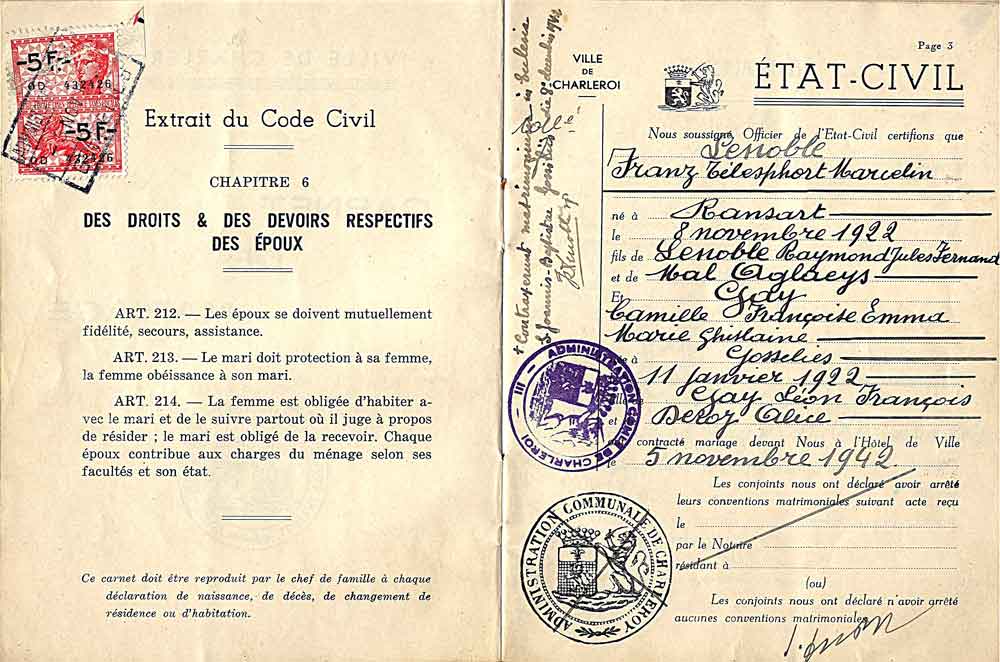 -5 F-
OD 432126
-5 F-
OD 432126
Extrait du Code Civil
CHAPITRE 6
DES DROITS & DES DEVOIRS RESPECTIFS
DES ÉPOUX
ART. 212. — Les époux se doivent mutuellement
fidélité, secours, assistance.
ART. 213. — Le mari doit protection à sa femme,
la femme obéissance à son mari.
ART. 214. — La femme est obligée d'habiter a-
vec le mari et de le suivre partout où il juge à propos
de résider ; le mari est obligé de la recevoir. Chaque
époux contribue aux charges du ménage selon ses
facultés et son état.
Ce carnet doit être reproduit par le chef de famille à chaque
déclaration de naissance, de décès, de changement de
résidence ou d'habitation.
+ Contraxerunt matrimonium in Ecclesia
S Joannis-Baptistae die 8a decembris 1942
Page 3
VILLE
DE
CHARLEROI
ÉTAT-CIVIL
Nous soussigné, Officier de l'Etat-Civil certifions que
Lenoble
Franz Télesphort Marcelin
né à Ransart
le 8 novembre 1922
fils de Lenoble Raymond Jules Fernand
et de Mal Aglaeys
Et Gay
Camille Françoise Emma
Marie Ghislaine
à Gosselies
11 janvier 1922
Gay Léon François
et Deroy Alice
contracté mariage devant Nous à l'Hôtel de Ville
le 5 novembre 1942
Les conjoints nous ont déclaré avoir arrêté
leurs conventions matrimoniales suivant acte reçu
le
par le Notaire
résidant à
(ou)
Les conjoints nous ont déclaré n'avoir arrêté
aucunes conventions matrimoniales
ADMINISTRATION COMLE DE CHARLEROI - III -
ADMINISTRATION COMMUNALE DE CHARLEROY